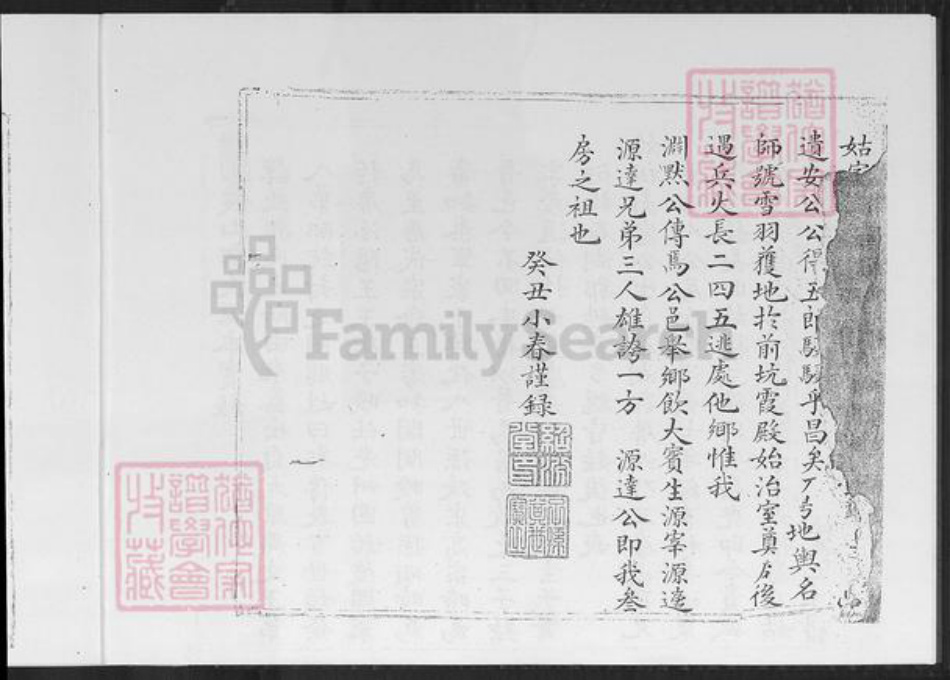 姑
遺安公公得五郎駸駸乎昌矣 地輿名
師號雪羽獲地於前坑霞殿始治室奠 後
遇兵火長二四五逃處他鄉惟我
淵默公傳馬公邑舉鄉飲大賓生源宰源遠
源達兄弟三人雄誇一方 源達公即我叁
房之祖也
癸丑小春謹録
FamilySearch